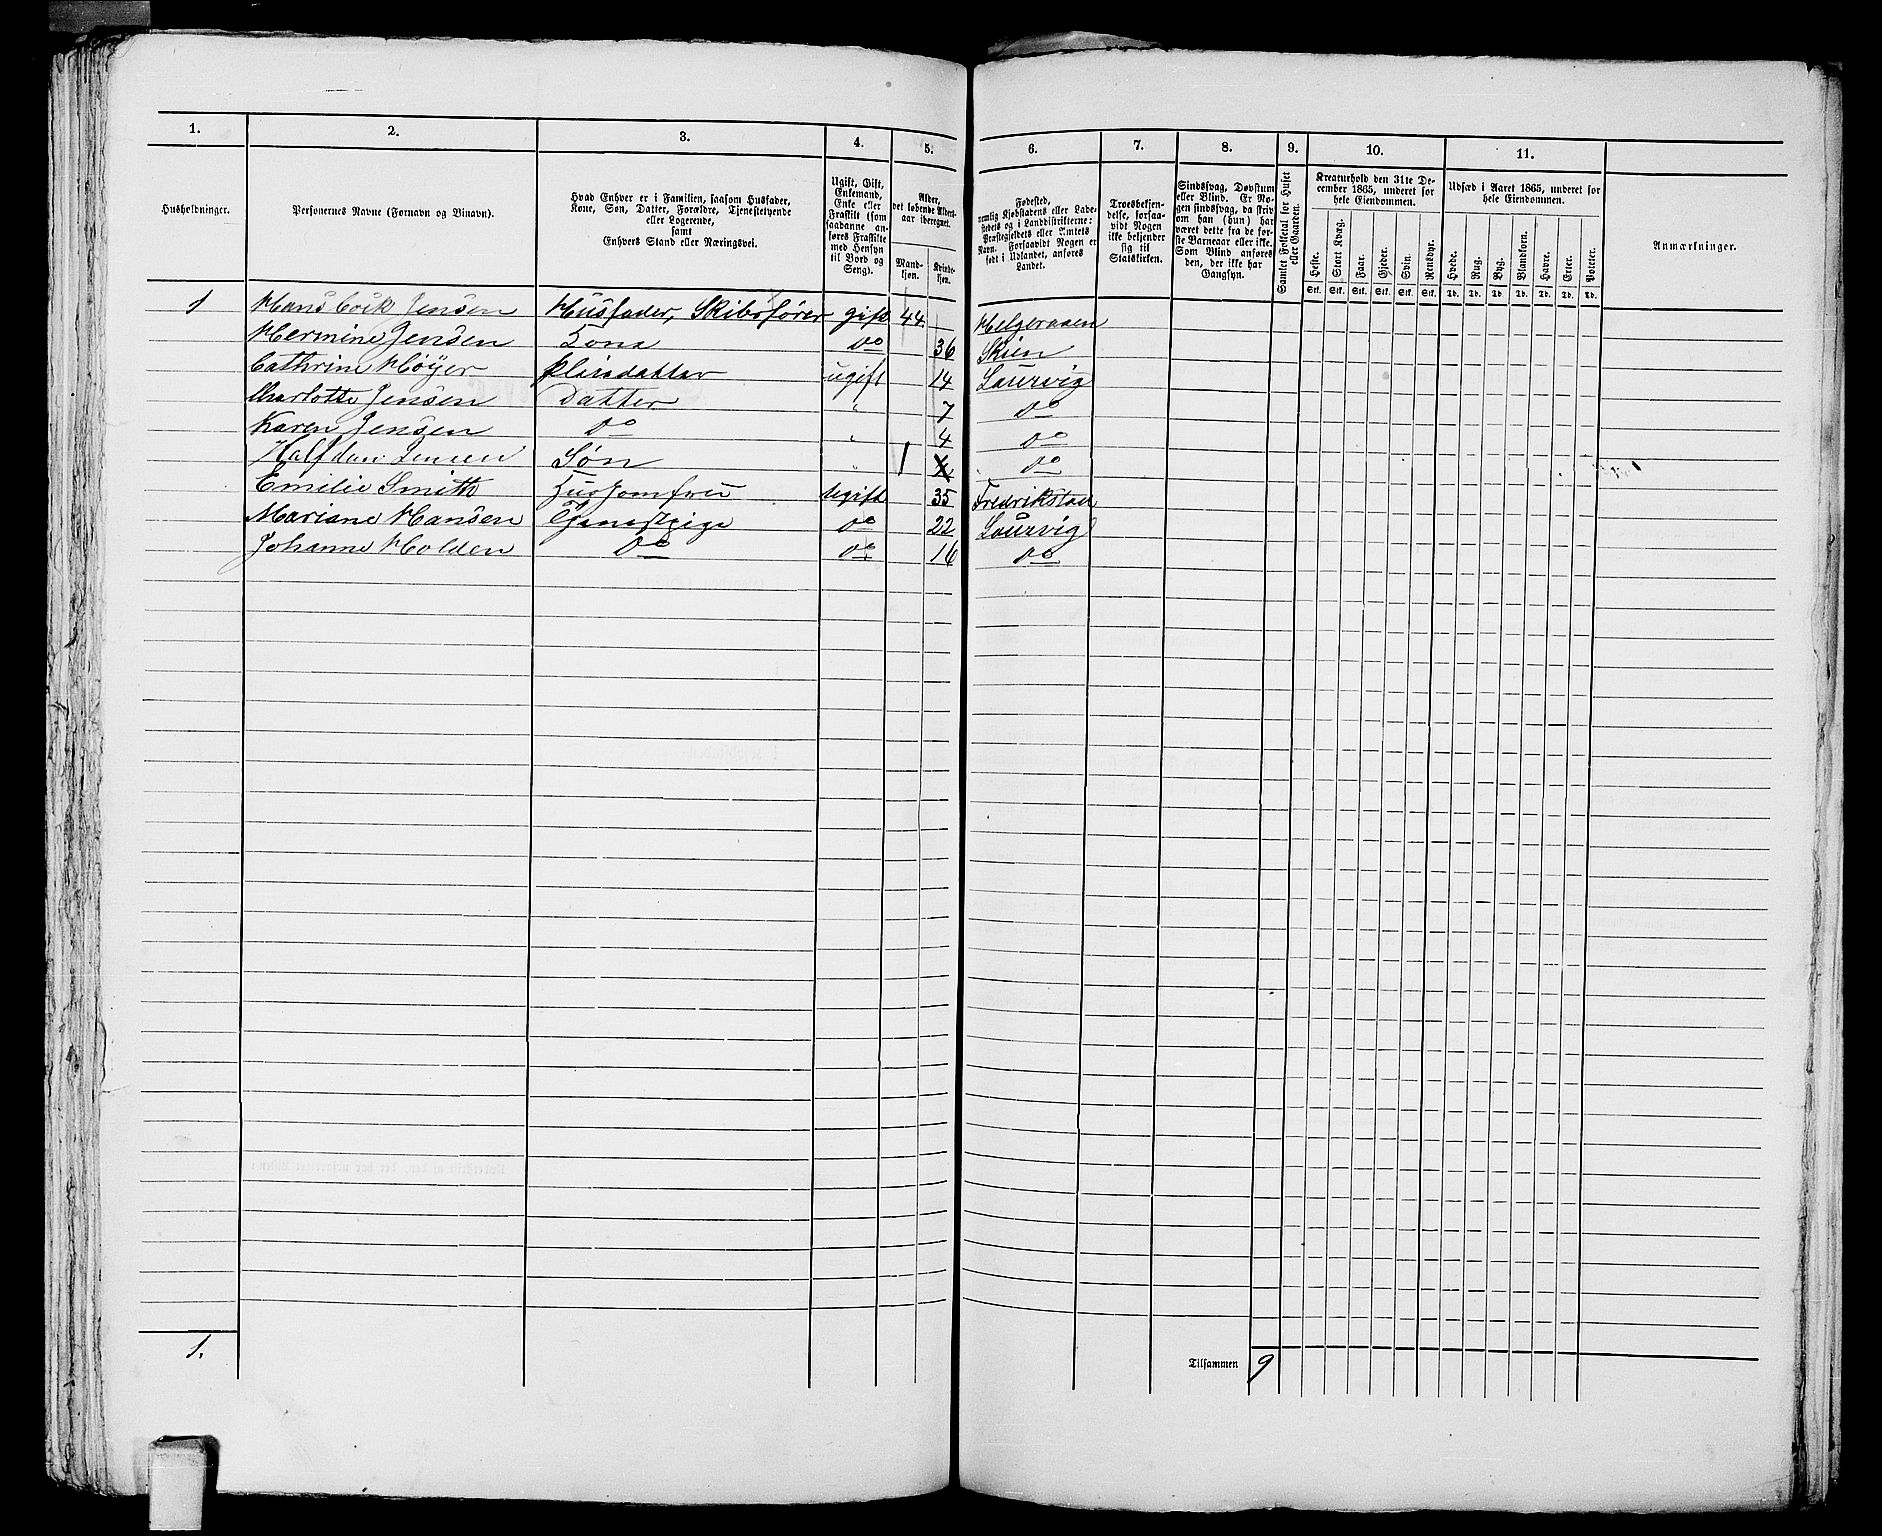 1. 2. 3. 4. 5. 6. 7. 8. 9. 10. 11.
Husholdninger.
Personernes Navne (Fornavn og Binavn).
Hvad Enhver er i Familien, saasom Husfader,
Kone, Søn, Datter, Forældre, Tjenestetyende
eller Logerende,
samt
Enhvers Stand eller Næringsvei.
Ugift, Gift,
Enkemand,
Enke eller
Fraskilt (som
saadanne an-
føres Fraskilte
med Hensyn
til Bord og
Seng).
Alder,
det løbende Alders-
aar iberegnet.
Mand-
kjøn.
Kvinde-
kjøn.
Fødested,
nemlig Kjøbstadens eller Lade-
stedets og i Landdistrikterne:
Præstegjeldets eller Amtets
Navn. Forsaavidt Nogen er
født i Udlandet, anføres
Landet.
Troesbekjen-
delse, forsaa-
vidt Nogen
ikke bekjender
sig til
Statskirken.
Sindssvag, Døvstum
eller Blind. Er No-
gen sindssvag, da skriv
om han (hun) har
været dette fra de før-
ste Barneaar eller ikke.
Som Blind anføres
den, der ikke har
Gangsyn.
Samlet Folketal for Huset
eller Gaarden.
Kreaturhold den 31te De-
cember 1865, underet for
hele Eiendommen.
Heste. Stort Kvæg. Faar. Gjeder. Svin. Rensdyr.
Stk. Stk. Stk. Stk. Stk. Stk.
Udsæd i Aaret 1865, underet for
hele Eiendommen.
Hvede. Rug. Byg. Blandkorn. Havre. Erter. Poteter.
Td. Td. Td. Td. Td. Td. Td.
Anmærkninger.
1 Hans Erik Jensen Husfader, Skibsfører gift 44 Helgeraaen
Hermine Jensen Kone do 36 Skien
Cathrine Høyer pleiedatter ugift 14 Laurvig
Charlotte Jensen Datter " 7 do
Karen Jensen do " 4 do
Halfdan Jensen Søn " 1 do
Emilie Smith Husjomfru ugift 35 Fredrikstad
Mariane Hansen Tjenestpige do 22 Laurvig
Johanne Holden do do 16 do
1. Tilsammen 9